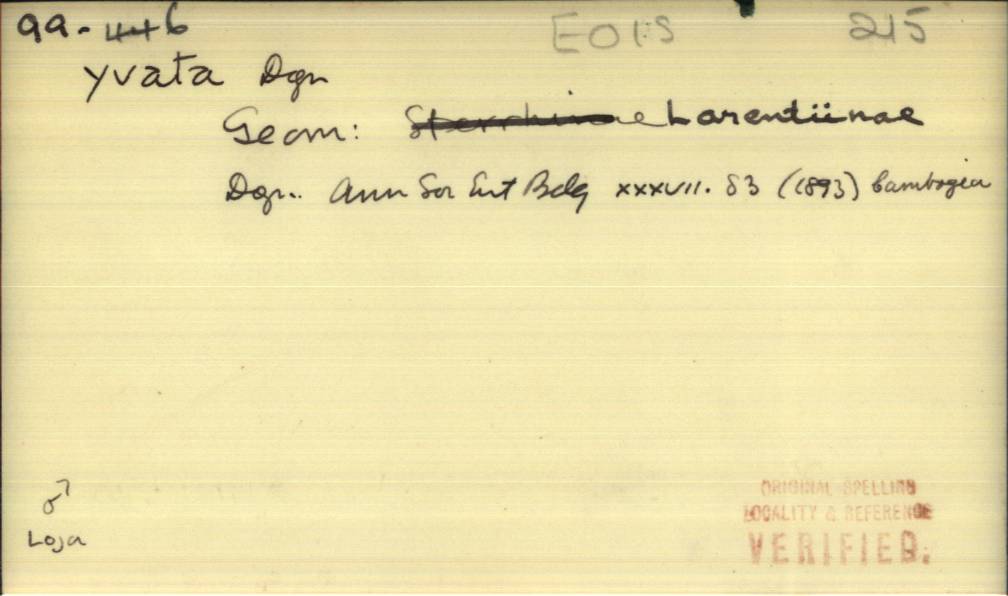 99-446 EOIS 215
yvata Dgn
Geom: Sterrhinae Larentiinae
Dgn. Ann Soc Ent Belg xxxvii. 83 (1893) Cambogia
♂
Loja
ORIGINAL SPELLING
LOCALITY & REFERENCE
VERIFIED.